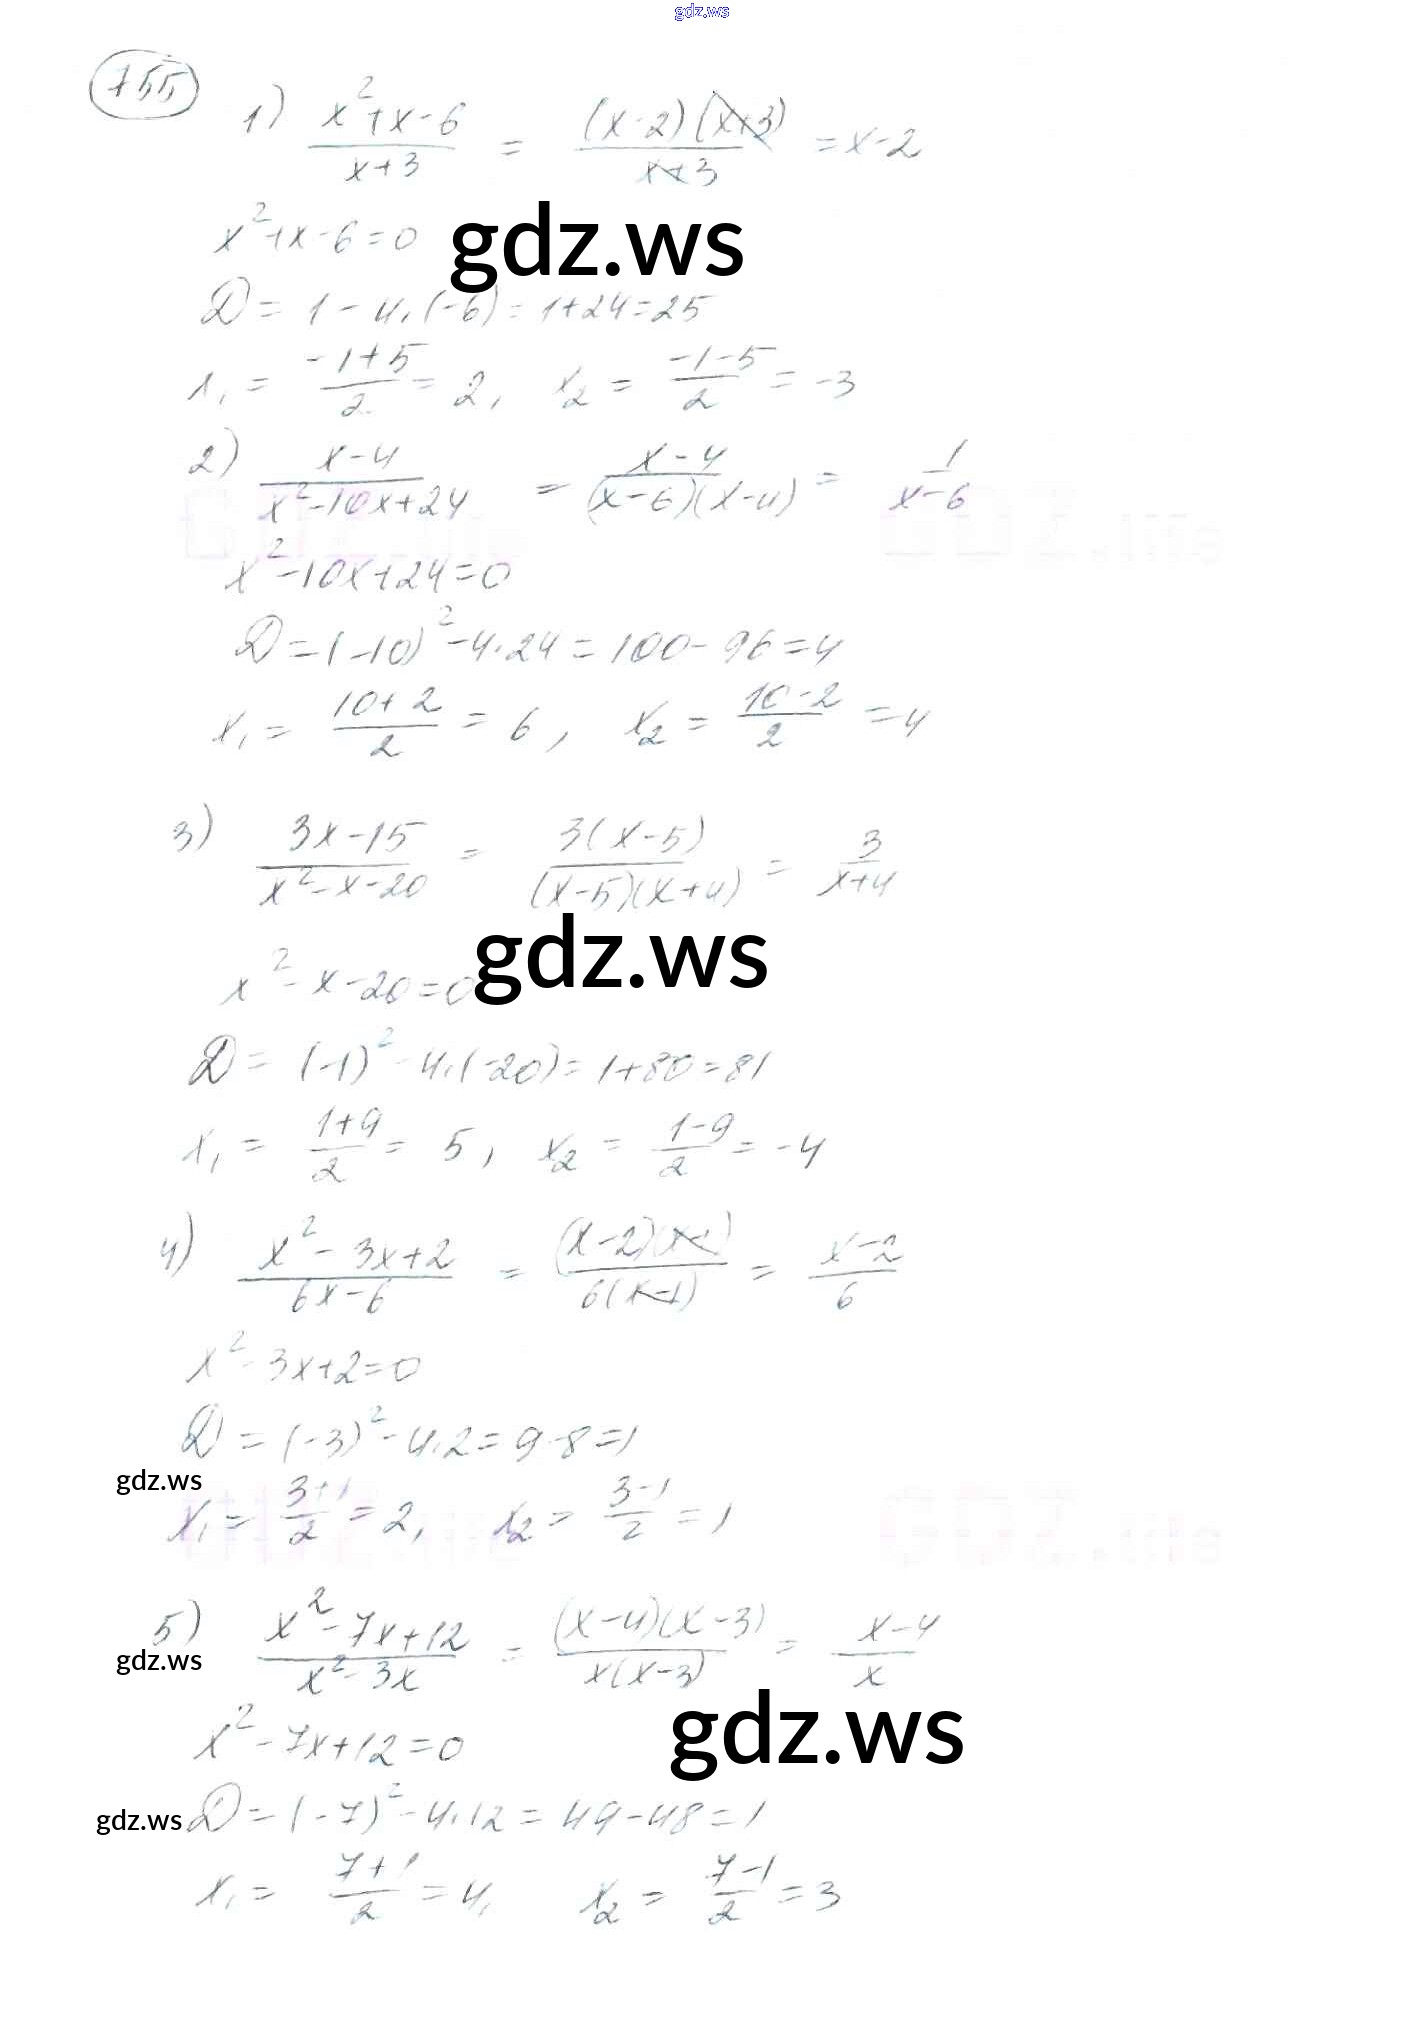 gdz.ws
755
1) (x²+x-6)/(x+3) = ((x-2)(x+3))/(x+3) = x-2
x²+x-6=0
gdz.ws
D = 1-4·(-6) = 1+24=25
x₁ = (-1+5)/2 = 2, x₂ = (-1-5)/2 = -3
2) (x-4)/(x²-10x+24) = (x-4)/((x-6)(x-4)) = 1/(x-6)
GDZ.life GDZ.life
x²-10x+24=0
D=(-10)²-4·24 = 100-96=4
x₁ = (10+2)/2 = 6, x₂ = (10-2)/2 = 4
3) (3x-15)/(x²-x-20) = (3(x-5))/((x-5)(x+4)) = 3/(x+4)
gdz.ws
x²-x-20=0
D = (-1)²-4·(-20) = 1+80=81
x₁ = (1+9)/2 = 5, x₂ = (1-9)/2 = -4
4) (x²-3x+2)/(6x-6) = ((x-2)(x-1))/(6(x-1)) = (x-2)/6
x²-3x+2=0
D = (-3)²-4·2 = 9-8=1
gdz.ws
x₁ = (3+1)/2 = 2, x₂ = (3-1)/2 = 1
GDZ.life GDZ.life
5) (x²-7x+12)/(x²-3x) = ((x-4)(x-3))/(x(x-3)) = (x-4)/x
gdz.ws
x²-7x+12=0
gdz.ws
gdz.ws
D=(-7)²-4·12 = 49-48=1
x₁ = (7+1)/2 = 4, x₂ = (7-1)/2 = 3